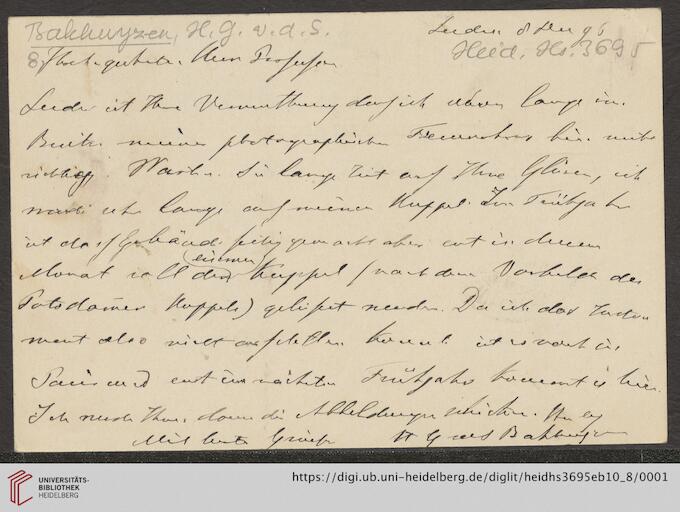 Bakhuyzen, H. G. v. d. S.
Leiden 8 Dec 95
Heid. Hs. 3695
8
Hochgeehrter Herr Professor
Leider ist Ihre Vermuthung dass ich schon lange im
Besitz meines photographischen Fernrohres bin nicht
richtig. Warten Sie lange Zeit auf Ihre Gläser, ich
warte sehr lange auf meine Kuppel. Im Frühjahr
ist das Gebäude fertig gemacht aber erst in diesem
Monat soll die (eiserne) Kuppel (nach dem Vorbilde der
Potsdamer Kuppeln) geliefert werden. Da ich das Instru
ment also nicht aufstellen konnte ist es noch in
Paris und erst im nächsten Frühjahr kommt es hier.
Ich werde Ihnen dann die Abbildungen schicken.
Mit besten Grüssen H G vd S Bakhuyzen
UNIVERSITÄTS-
BIBLIOTHEK
HEIDELBERG
https://digi.ub.uni-heidelberg.de/diglit/heidhs3695eb10_8/0001